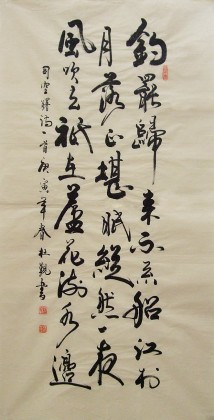 釣罷歸來不系船江村
月落正堪眠縱然一夜
風吹去祇在蘆花淺水邊
司空曙詩一首庚寅年春杜書